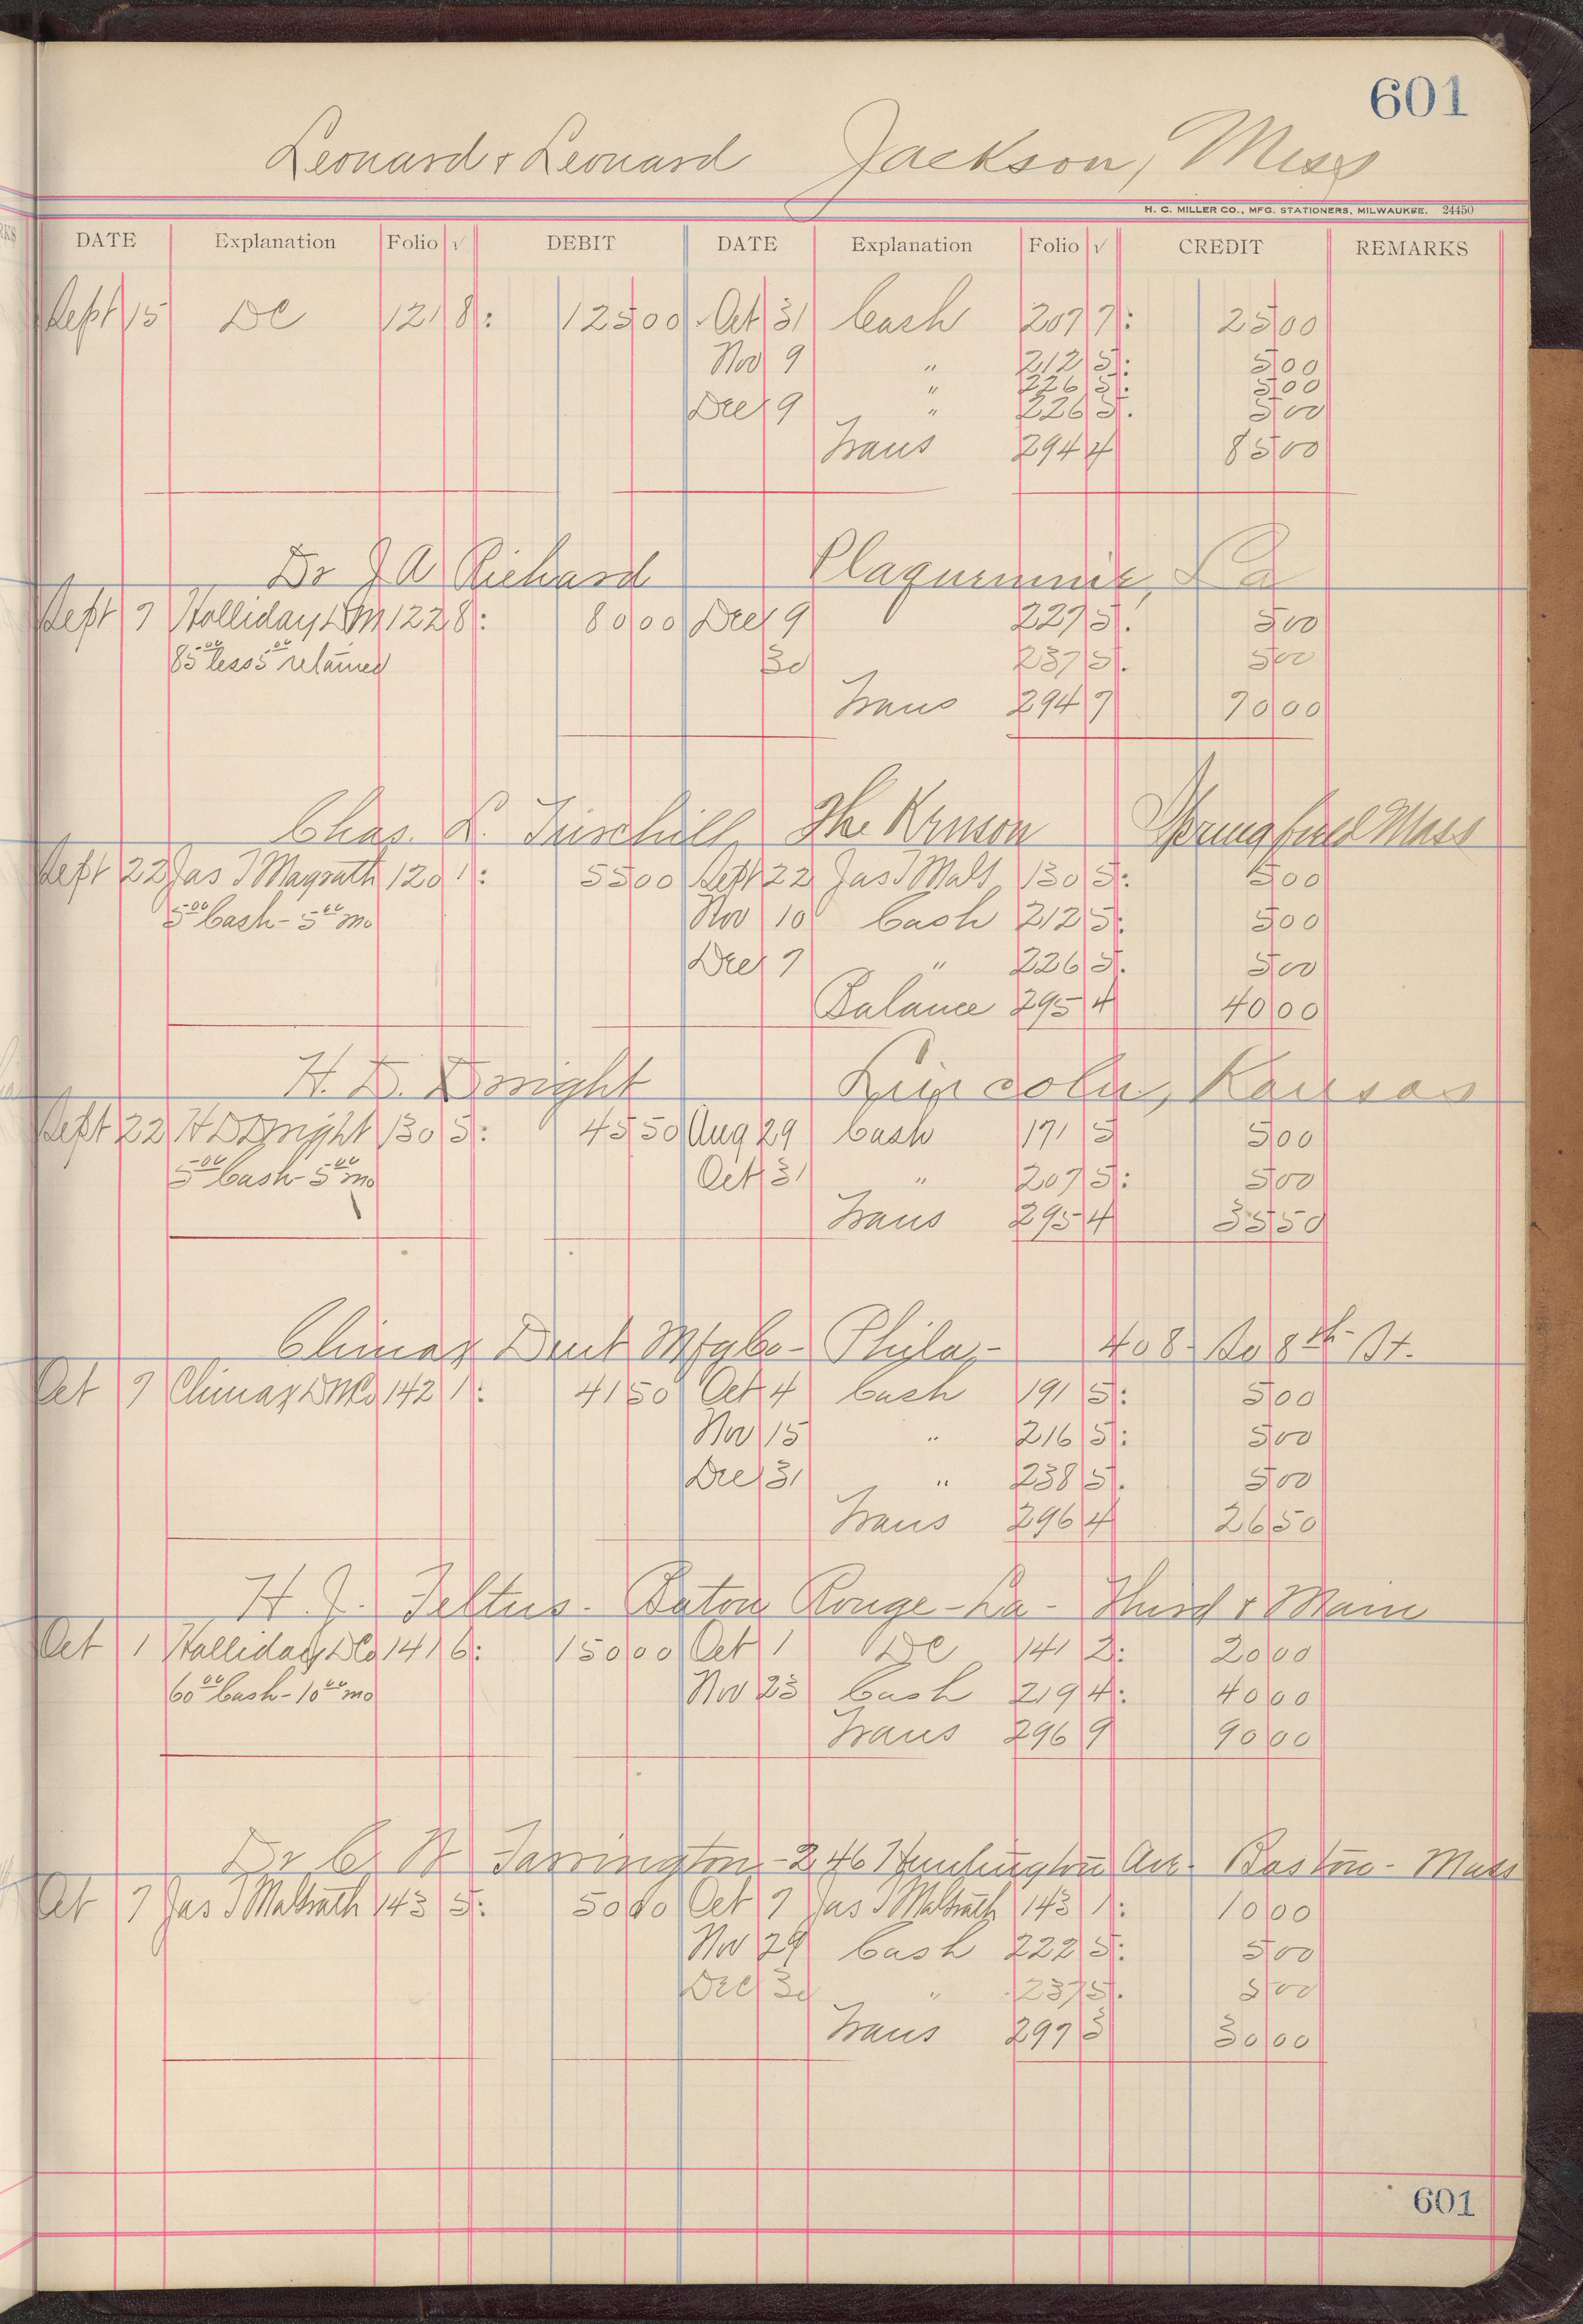 601
Leonard & Leonard Jackson, Miss
H. C. MILLER CO., MFG. STATIONERS, MILWAUKEE. 24450
DATE Explanation Folio √ DEBIT DATE Explanation Folio √ CREDIT REMARKS
Sept 15 DC 121 8: 125 00 Oct 31 Cash 207 7: 25 00
Nov 9 " 212 5: 5 00
" 226 5: 5 00
Dec 9 " 226 5. 5 00
Trans 294 4 85 00
Dr J A Richard Plaquemine, La
Sept 7 Halliday DM 122 8: 80 00 Dec 9 227 5. 5 00
85 00 less 5 00 retained 30 237 5. 5 00
Trans 294 7 70 00
Chas. L. The Springfield Mass
Sept 22 Jas T 120 1: 55 00 Sept 22 Jas T 130 5: 5 00
5 00 Cash - 5 00 mo Nov 10 Cash 212 5: 5 00
Dec 7 " 226 5. 5 00
Balance 295 4 40 00
H. D. Dwight Lincoln, Kansas
Sept 22 H D Dwight 130 5: 45 50 Aug 29 Cash 171 5 5 00
5 00 Cash - 5 00 mo Oct 31 " 207 5: 5 00
Trans 295 4 35 50
Climax Dent Mfg Co - Phila - 408 So 8th St.
Oct 7 Climax D M Co 142 1: 41 50 Oct 4 Cash 191 5: 5 00
Nov 15 " 216 5: 5 00
Dec 31 " 238 5. 5 00
Trans 296 4 26 50
H. J. Feltus - Baton Rouge - La - Third & Main
Oct 1 Halliday D Co 141 6: 150 00 Oct 1 DC 141 2: 20 00
60 00 Cash - 10 00 mo Nov 23 Cash 219 4: 40 00
Trans 296 9 90 00
Dr C W Farrington - 246 Huntington Ave - Boston - Mass
Oct 7 Jas T 143 5: 50 00 Oct 7 Jas T 143 1: 10 00
Nov 29 Cash 222 5: 5 00
Dec 30 " 237 5. 5 00
Trans 297 3 30 00
601